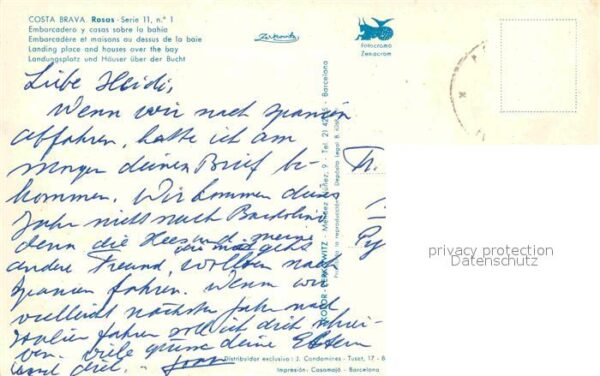 COSTA BRAVA. Rosas - Serie 11, n.° 1
Embarcadero y casas sobre la bahía
Embarcadère et maisons au dessus de la baie
Landing place and houses over the bay
Landungsplatz und Häuser über der Bucht
Zerkowitz
Fotocromo
Zerkocrom
Liebe Heidi,
Wenn wir nach Spanien
abfahren, hatte ich am
morgen deinen Brief be-
kommen. Wir kommen dieses
Jahr nicht nach Bardolino
denn die und meine
andere Freund, wollten nach
Spanien fahren. Wenn wir
vielleicht nächstes Jahr nach
Italien fahren soll ich dich schrei-
ben. Viele grüsse deine Eltern
und dich.
ZERKOWITZ - 9 - Tel. 21 - Barcelona
Prohibida la reproducción - Depósito Legal B.
privacy protection
Datenschutz
Distribuidor exclusivo: J. Condomines - Tuset, 17 - B
Impresión: Casamajó - Barcelona